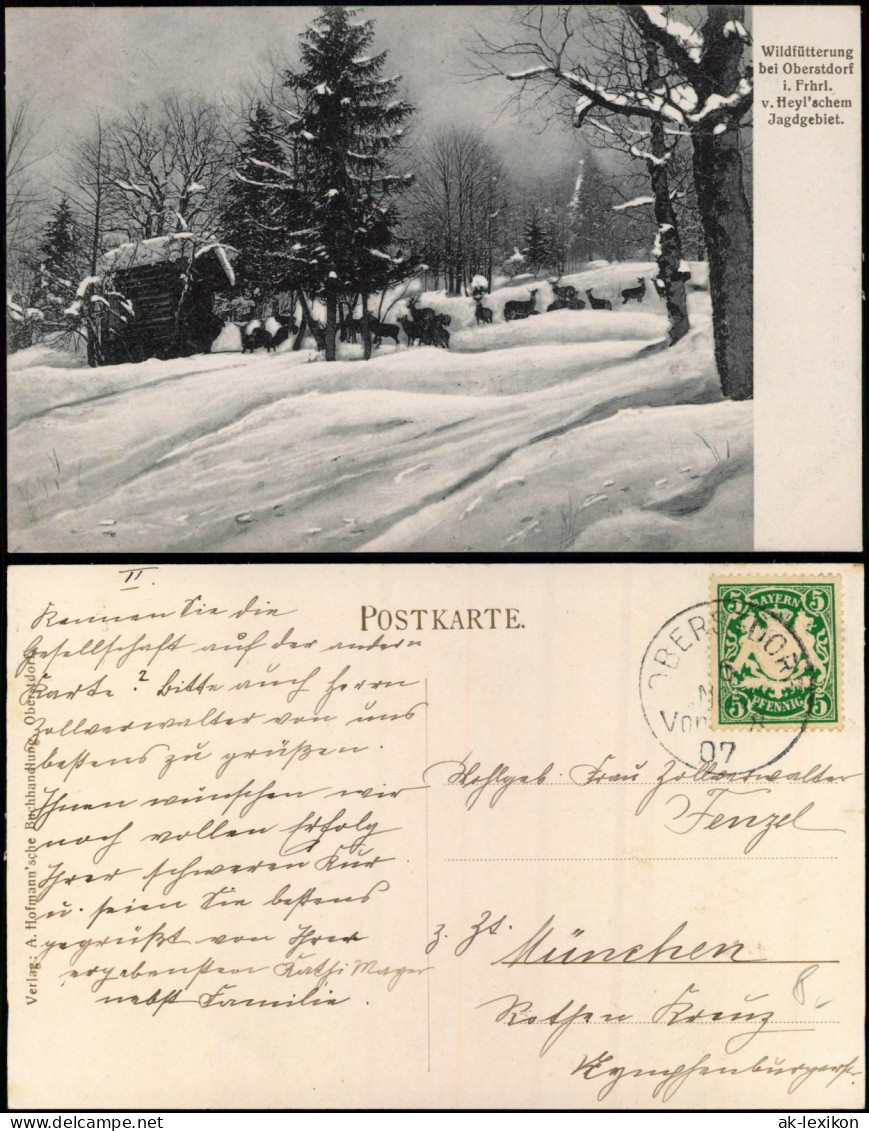 Wildfütterung
bei Oberstdorf
i. Frhrl.
v. Heyl'schem
Jagdgebiet.
II.
Kennen Sie die
Gesellschaft auf der andern
Karte? Bitte auch Herrn
Zollverwalter von uns
bestens zu grüßen.
Ihnen wünschen wir
noch vollen Erfolg
Ihrer schweren Kur
u. seien Sie bestens
gegrüßt von Ihrer
ergebensten Kathi Mayer
nebst Familie.
Verlag: A. Hofmann'sche Buchhandlung, Oberstdorf.
POSTKARTE.
5 BAYERN 5
5 PFENNIG 5
OBERSTDORF
07
Wohlgeb. Frau Zollverwalter
Fenzel
z. Zt. München
Rothen Kreuz
Nymphenburgerstr.
8.
ak-lexikon